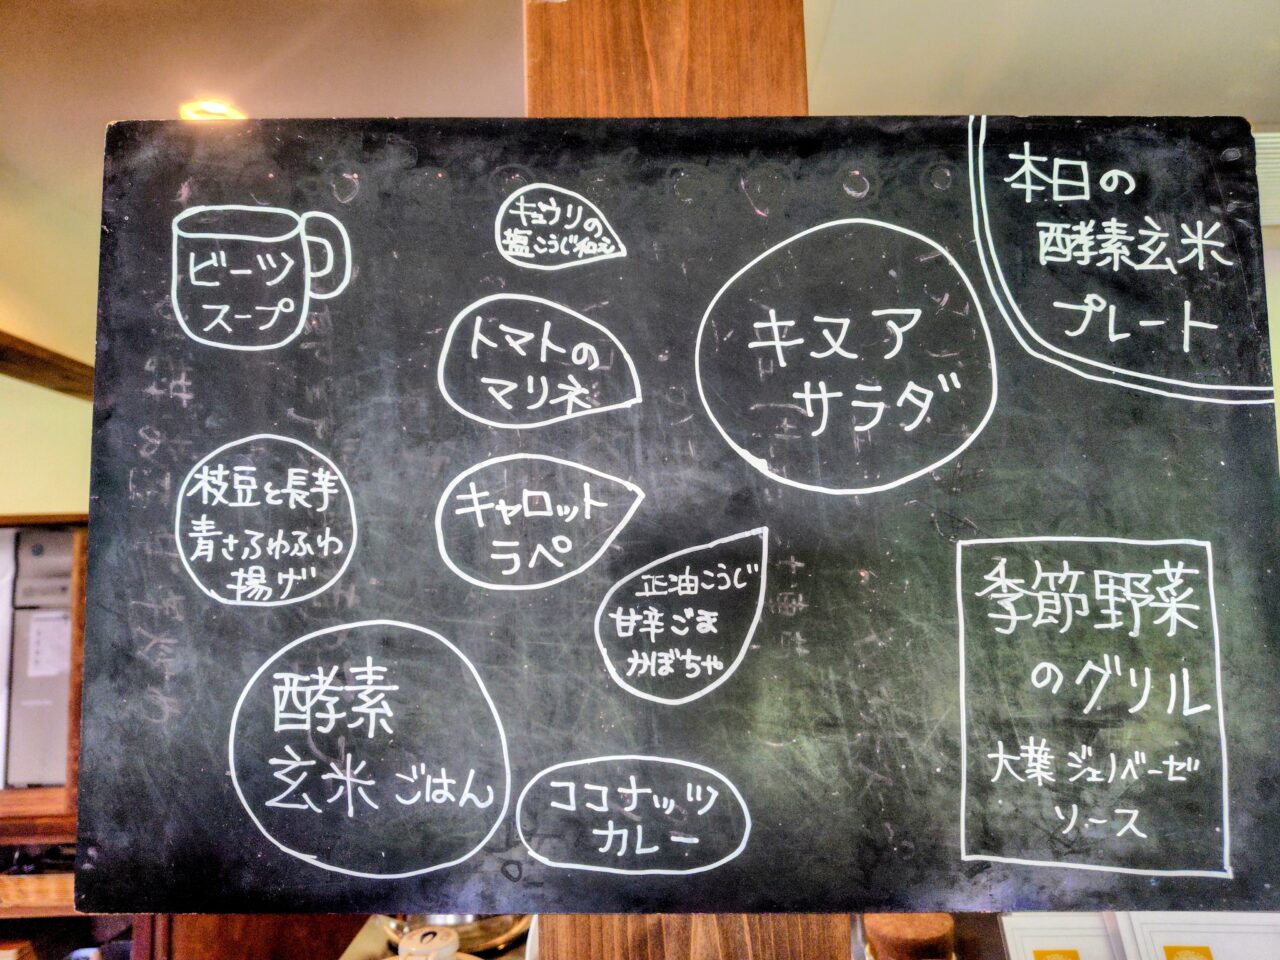 本日の
酵素玄米
プレート
ビーツ
スープ
キュウリの
塩こうじ和え
トマトの
マリネ
キヌア
サラダ
枝豆と長芋
青さふわふわ
揚げ
キャロット
ラペ
正油こうじ
甘辛ごま
かぼちゃ
季節野菜
のグリル
大葉ジェノベーゼ
ソース
酵素
玄米ごはん
ココナッツ
カレー